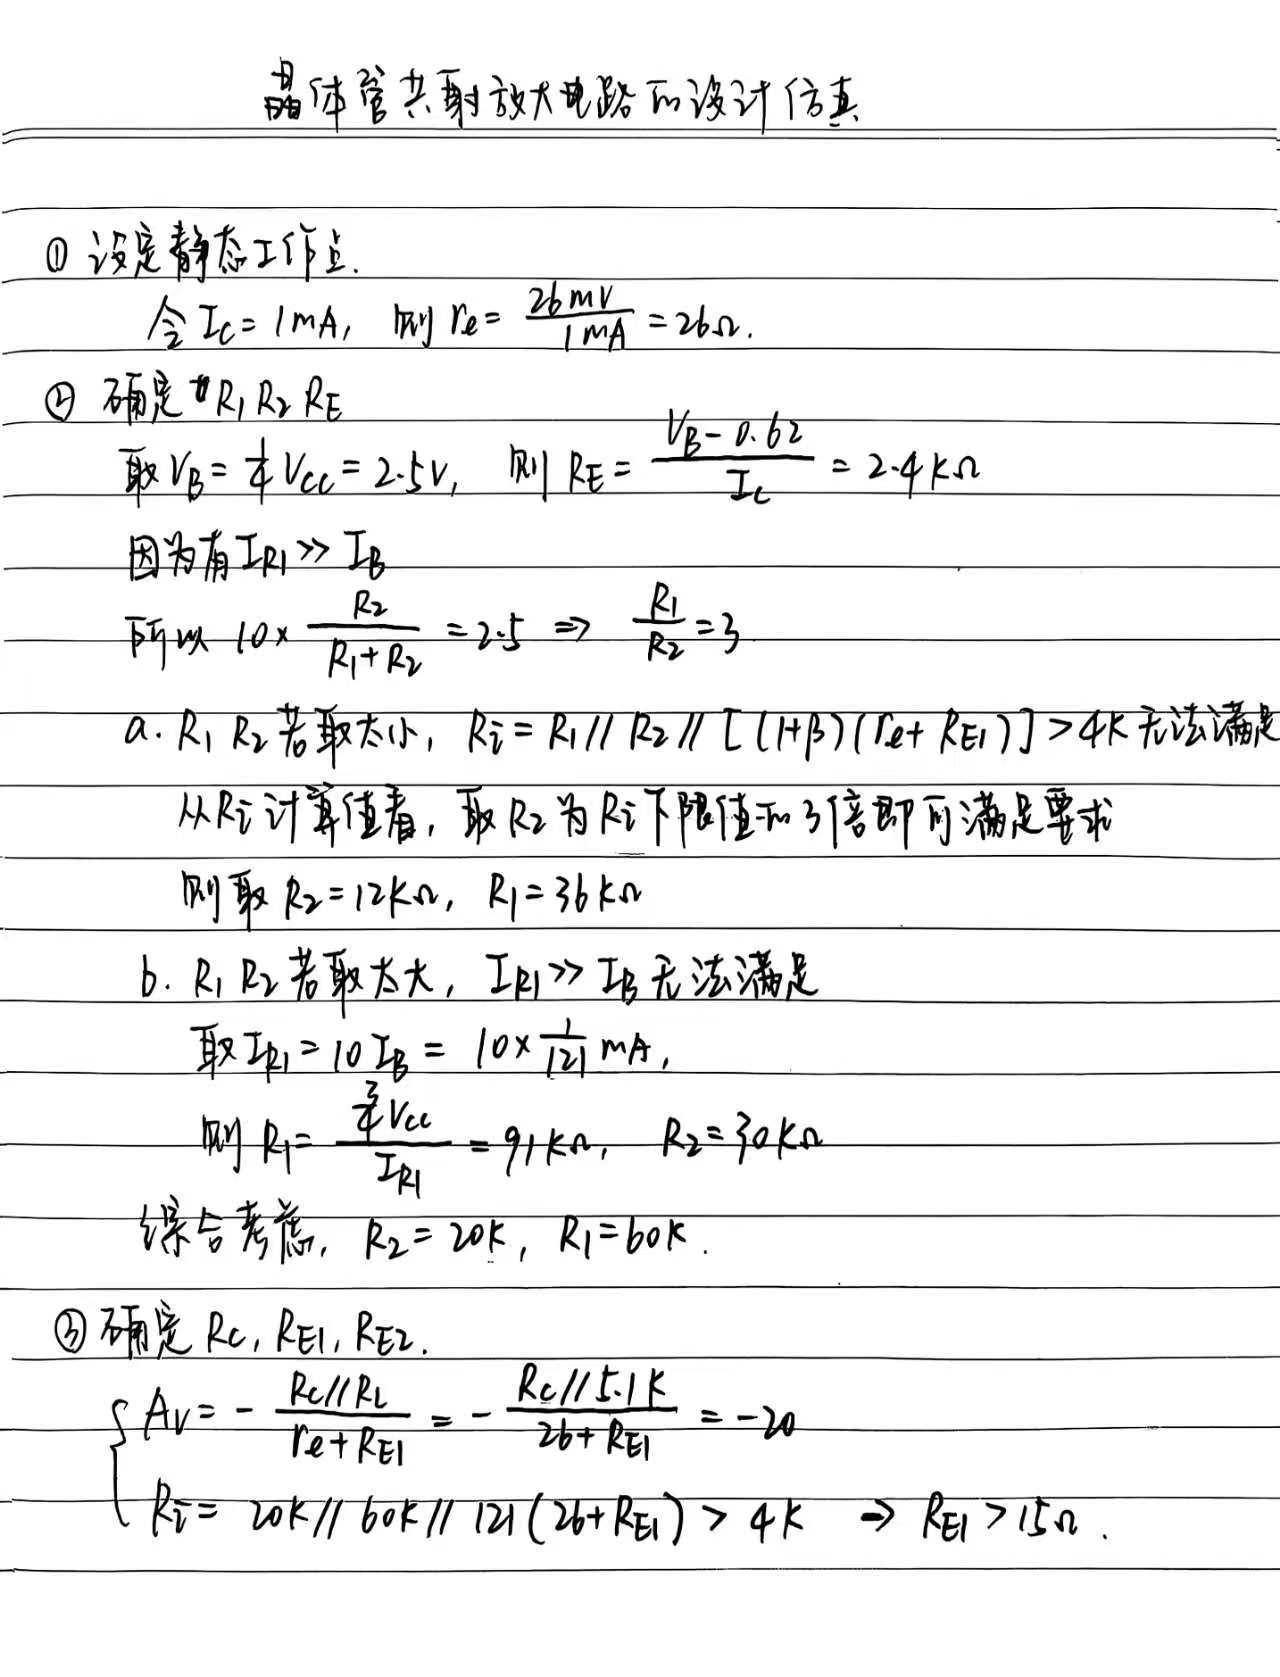 晶体管共射放大电路的设计仿真
① 设定静态工作点.
令 Ic = 1mA, 则 re = 26mV/1mA = 26Ω.
② 确定 R1 R2 RE
取 VB = 1/4 Vcc = 2.5V, 则 RE = (VB - 0.62)/Ic = 2.4kΩ
因为有 IR1 >> IB
所以 10 × R2/(R1+R2) = 2.5 ⇒ R1/R2 = 3
a. R1 R2 若取太小, Ri = R1 // R2 // [(1+β)(re + RE1)] > 4K 无法满足
从Ri计算值看, 取R2为Ri下限值的3倍即可满足要求
则取 R2 = 12kΩ, R1 = 36kΩ
b. R1 R2 若取太大, IR1 >> IB 无法满足
取 IR1 = 10 IB = 10 × 1/121 mA,
则 R1 = (3/4 Vcc)/IR1 = 91kΩ, R2 = 30kΩ
综合考虑, R2 = 20K, R1 = 60K.
③ 确定 Rc, RE1, RE2.
{ Av = - (Rc//RL)/(re + RE1) = - (Rc//5.1K)/(26 + RE1) = -20
Ri = 20K // 60K // 121(26+RE1) > 4K ⇒ RE1 > 15Ω.